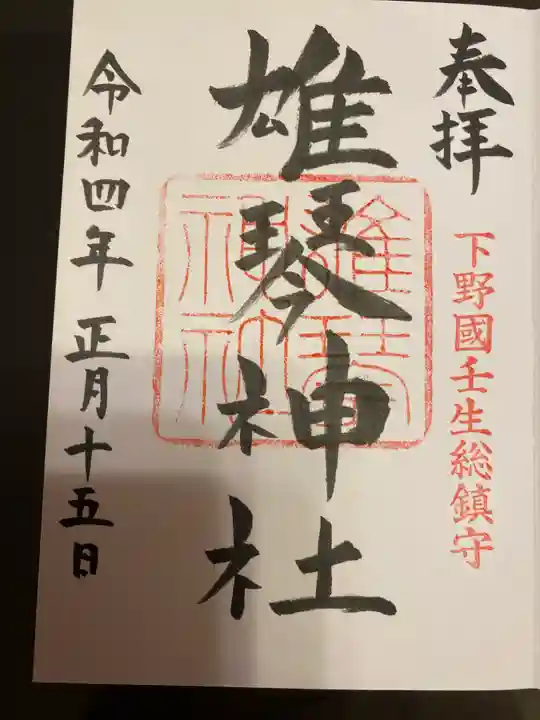 奉拝
下野國壬生総鎮守
雄琴神社
雄琴
神社
令和四年正月十五日